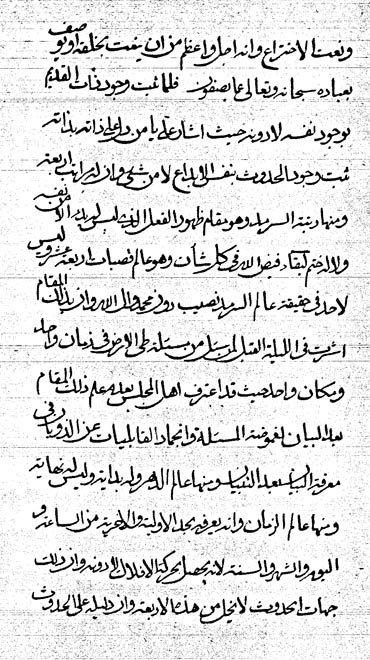 ونعت الاختراع وانه اجل واعظم من ان ينعت بخلقه او يوصف
بعباده سبحانه وتعالى عما يصفون فلما ثبت وجود ذات القديم
بوجود نفسه لا دونه حيث اشار على يا من دل على ذاته بذاته
ثبت وجود الحدوث بنفس الابداع لا من شيء وان له مراتب اربعة
ومنها رتبة السرمد وهو مقام ظهور الفعل الذي ليس له بدء الا من نفسه
ولا له ختم لبقاء فيض الله في كل شأن وهو عالم قصبات اربعة عشر وليس
لاحد في حقيقة عالم السرمد نصيب دون محمد وال الله وان بذلك المقام
اشرت في الليلة القبل من مسئلة طي الارض في زمان واحد
ومكان واحد حيث قد اعترف اهل المجلس بعدم علم ذلك المقام
بعد البيان لغموضة المسئلة وانجماد القابليات عن الذوبان في
معرفة البيان بعد التبيان ومنها عالم الدهر وله بداية وليس له نهاية
ومنها عالم الزمان وانه يعرف بحد الاولية والاخرية من الساعة و
اليوم والشهر والسنة لانه يحصل بحركة الافلاك لا دونه وان ذلك
جهات الحدوث لا يخلو من هذه الاربعة وان دليله على الحدوث